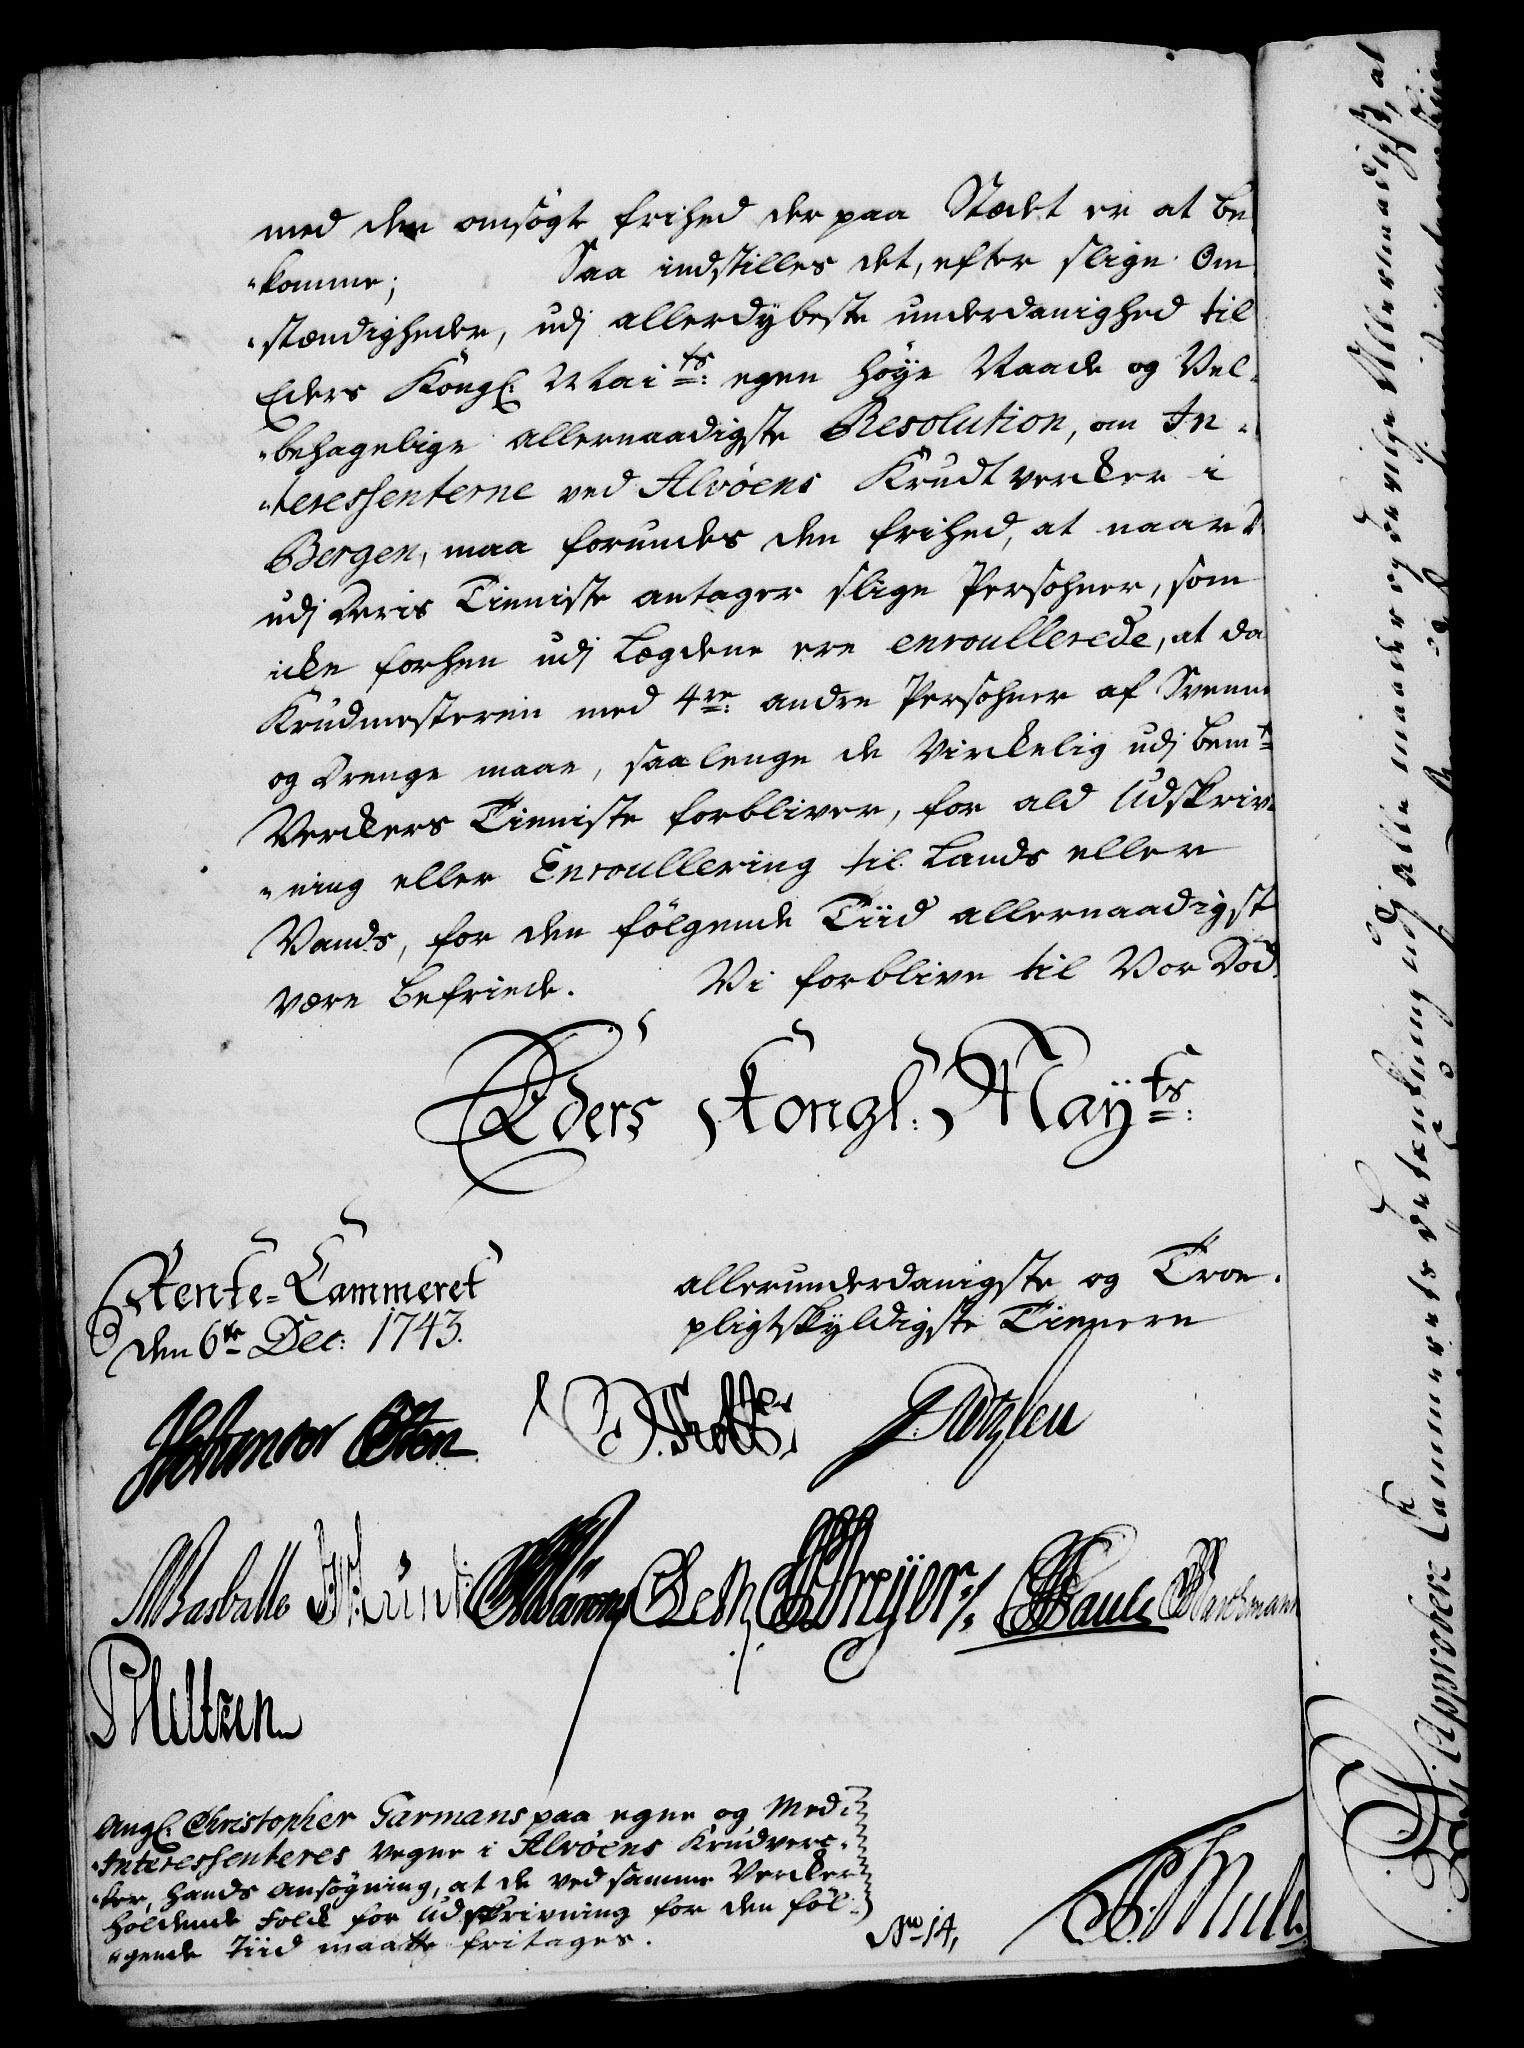 med den omsögte frihed der paa Stædet er at be
-komme; Saa indstilles det, efter slige Om
-stændigheder, udj allerdybeste underdanighed til
Eders Kongl: Mai ts: egen höye Naade og Vel-
-behagelige allernaadigste Resolution, om In-
-teressenterne ved Alvöens Krudtvercker i
Bergen, maa forundes den frihed, at naar de
udj deris Tienniste antager slige Persohner, som
icke forhen udj Lægdene ere enroullerede, at da
Krudmesteren med 4re: andre Persohner af Svenne
og Drenge maae, saalenge de Virckelig udj bemte
Verckers Tienniste forbliver, for ald Udskriv-
-ning eller Enroullering til Lands eller
Vands, for den fölgende Tiid allernaadigst
være befriede. Vi forblive til Vor Död
Eders Kongl: Mayts:
Rente-Cammeret
den 6te Dec: 1743.
allerunderdanigste og Troe-
pligtskyldigste Tiennere
Basballe
PHeltzen
Angl: Christopher Garmans paa egne og Med-
-Interessenteres vegne i Alvöens Krudverc-
-ker, hands ansögning, at de ved samme Vercker
holdende Folck for Udskrivning for den föl-
-gende Tiid maatte fritages.
No 14,
Vi Approbere Cammerets betænkning udj alle maader og deville Allernaadigst, at